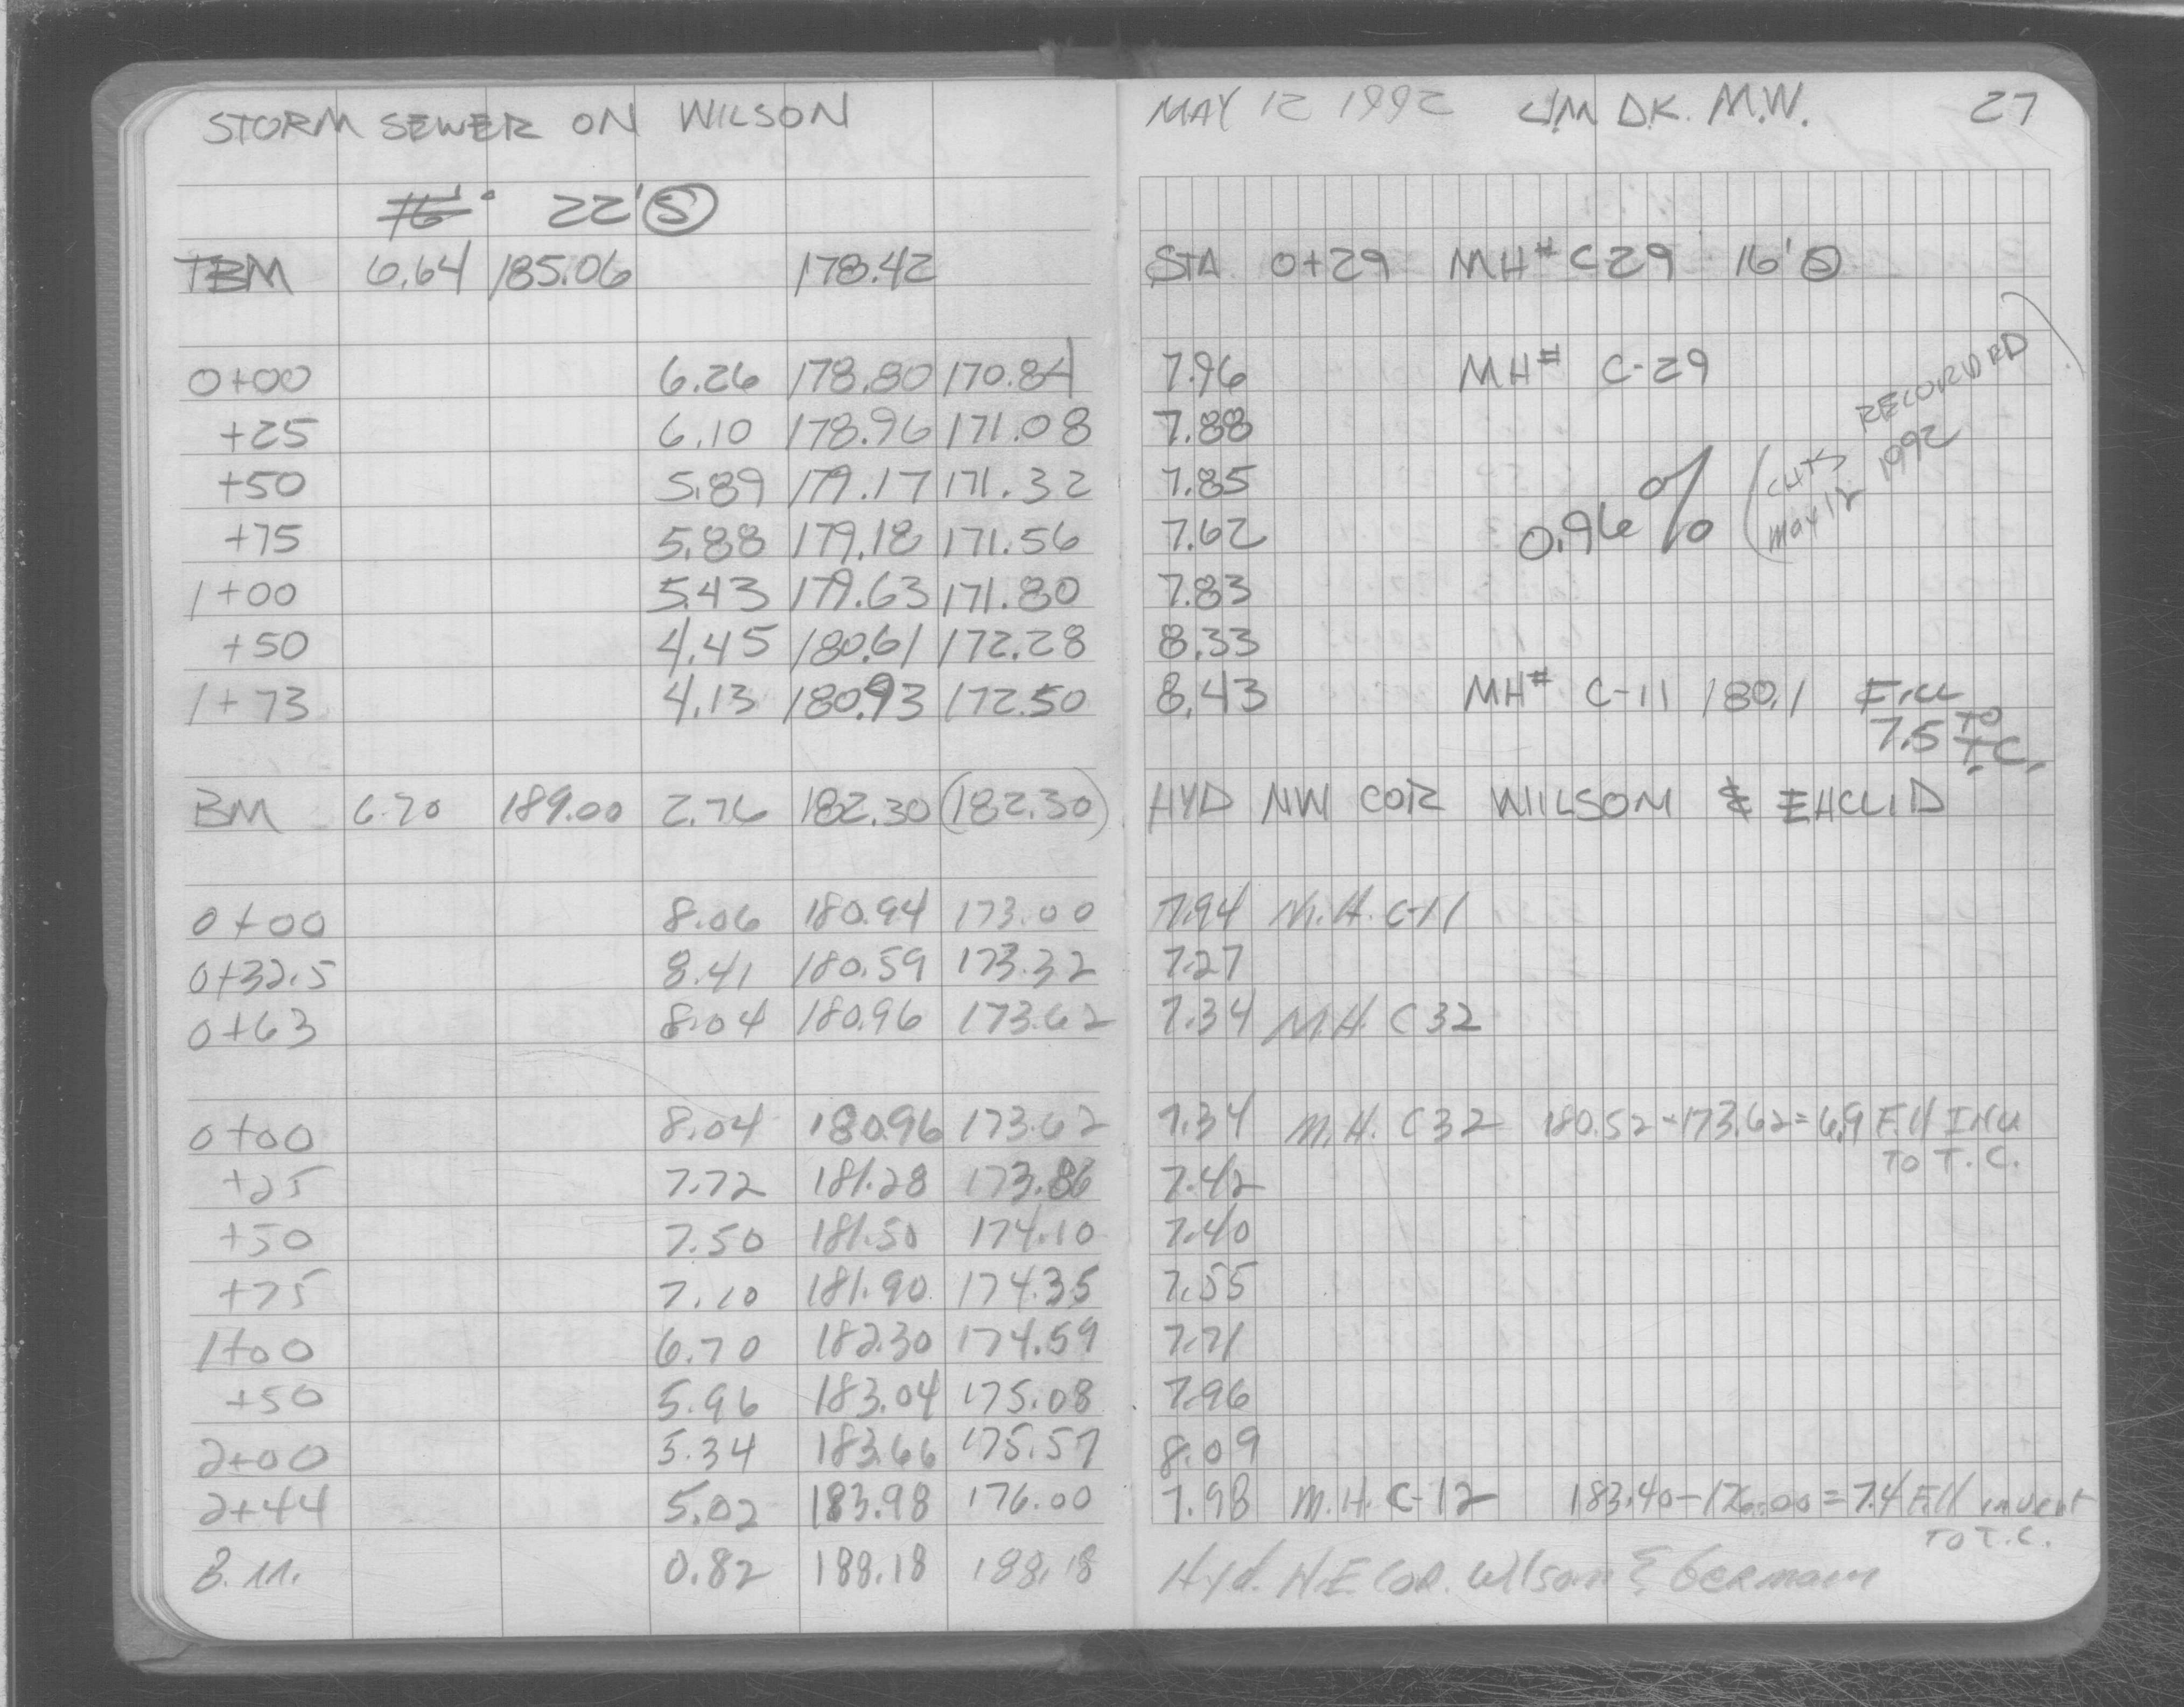 STORM SEWER ON WILSON
16' 22' S
TBM 6.64 185.06 178.42
0+00 6.26 178.80 170.84
+25 6.10 178.96 171.08
+50 5.89 179.17 171.32
+75 5.88 179.18 171.56
1+00 5.43 179.63 171.80
+50 4.45 180.61 172.28
1+73 4.13 180.93 172.50
BM 6.70 189.00 2.76 182.30 (182.30)
0+00 8.06 180.94 173.00
0+32.5 8.41 180.59 173.32
0+63 8.04 180.96 173.62
0+00 8.04 180.96 173.62
+25 7.72 181.28 173.86
+50 7.50 181.50 174.10
+75 7.10 181.90 174.35
1+00 6.70 182.30 174.59
+50 5.96 183.04 175.08
2+00 5.34 183.66 175.57
2+44 5.02 183.98 176.00
B.M. 0.82 188.18 188.18
MAY 12 1992 J.M D.K. M.W. 27
STA 0+29 MH# C29 16' S
7.96 MH# C-29
7.88
7.85
7.62 0.96% (CUTS RECORDED
May 12 1992
7.83
8.33
8.43 MH# C-11 180.1 Fill
7.5 TO
T.C.
HYD NW COR WILSON & EUCLID
7.94 M.H. C-11
7.27
7.34 M.H. C32
7.34 M.H. C32 180.52-173.62=6.9 Fill INV
TO T.C.
7.42
7.40
7.55
7.71
7.96
8.09
7.98 M.H. C-12 183.40-176.00=7.4 Fill invert
TO T.C.
Hyd. N.E. Cor. Wilson & Germain